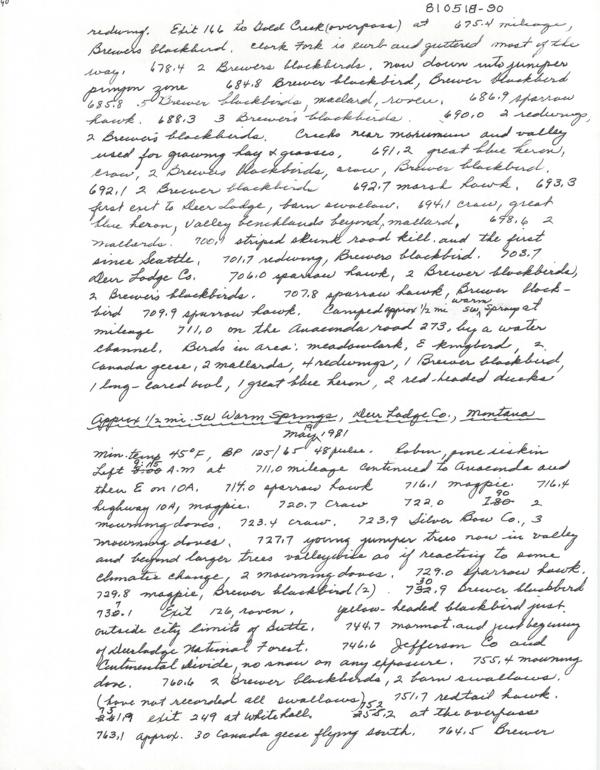 810518-90
redwing. Exit 166 to Gold Creek (overpass) at 675.4 mileage,
Brewers blackbird. Clark Fork is curb and guttered most of the
way. 678.4 2 Brewers blackbirds. now down into juniper
pinyon zone 684.8 Brewer blackbird, Brewer blackbird
685.8 5 Brewer blackbirds, mallard, raven. 686.9 sparrow
hawk. 688.3 3 Brewer's blackbirds. 690.0 2 redwings,
2 Brewer's blackbirds. Creeks near monument and valley
used for growing hay & grasses. 691.2 great blue heron,
crow, 2 Brewers blackbirds, crow, Brewer blackbird.
692.1 2 Brewer blackbirds 692.7 marsh hawk. 693.3
first exit to Deer Lodge, barn swallow. 694.1 crow, great
blue heron, valley benchlands beyond, mallard, 698.6 2
mallards. 700.9 striped skunk road kill and the first
since Seattle. 701.7 redwing, Brewers blackbird. 703.7
Deer Lodge Co. 706.0 sparrow hawk, 2 Brewer blackbirds,
2 Brewer's blackbirds. 707.8 sparrow hawk, Brewer black-
bird 709.9 sparrow hawk. Camped approx 1/2 mi SW, warm Springs at
mileage 711.0 on the Anaconda road 273, by a water
channel. Birds in area: meadowlark, E kingbird, 2
Canada geese, 2 mallards, 4 redwings, 1 Brewer blackbird,
1 long-eared owl, 1 great blue heron, 2 red-headed ducks
Approx 1/2 mi. SW Warm Springs, Deer Lodge Co., Montana
May 19, 1981
min. temp 45°F, BP 125/65 48 pulse. Robin, pine siskin
Left 9:15 A.M at 711.0 mileage continued to Anaconda and
then E on 10A. 714.0 sparrow hawk 716.1 magpie. 716.4
highway 10A, magpie. 720.7 Crow 722.0 I 90 2
mourning doves. 723.4 crow. 723.9 Silver Bow Co., 3
mourning doves. 727.7 young juniper trees now in valley
and beyond larger trees valleywise as if reacting to some
climatic change, 2 mourning doves. 729.0 sparrow hawk.
729.8 magpie, Brewer blackbird (2) 730.9 Brewer blackbird
737.1 Exit 126, raven. yellow-headed blackbird just
outside city limits of Butte. 744.7 marmot and just beginning
of Deerlodge National Forest. 746.6 Jefferson Co and
Continental divide, no snow on any exposure. 755.4 mourning
dove. 760.6 2 Brewer blackbirds, 2 barn swallows.
(have not recorded all swallows) 751.7 redtail hawk.
exit 249 at Whitehall. at the overpass
763.1 approx. 30 Canada geese flying south. 764.5 Brewer